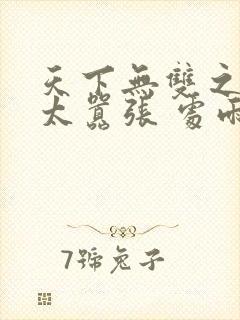 天下無雙之
太囂張 處雨
7號兔子